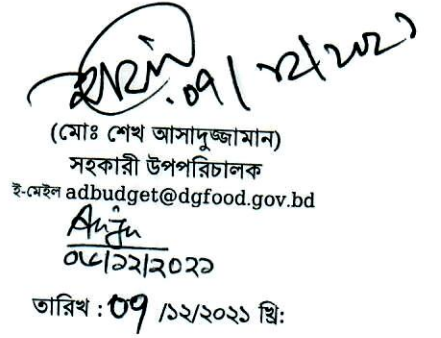 ০৭/১২/২০২১
(মোঃ শেখ আসাদুজ্জামান)
সহকারী উপপরিচালক
ই-মেইল adbudget@dgfood.gov.bd
Anju
০৬/১২/২০২১
তারিখ : ০৭ /১২/২০২১ খ্রি: